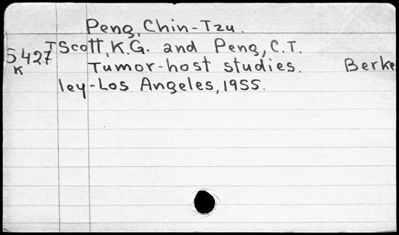 Peng, Chin-Tzu.
TScott, K.G. and Peng, C.T.
S427
K
Tumor-host studies. Berke
ley-Los Angeles, 1955.